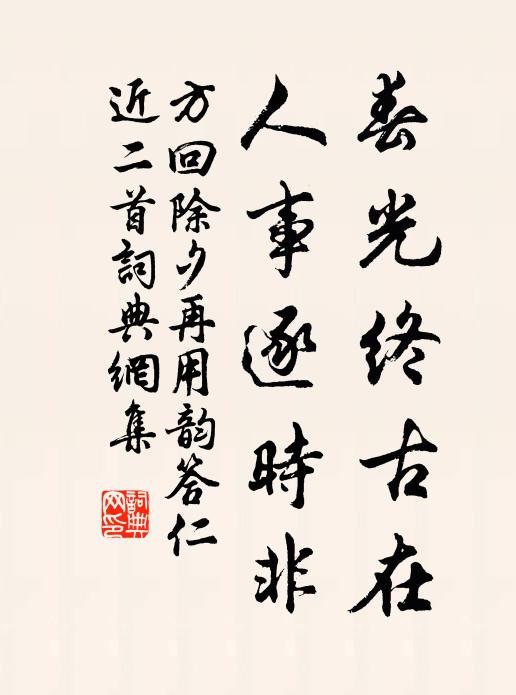 春光終古在
人事逐時非
方回除夕再用韵答仁
近二首詞典網集
詞典
网印